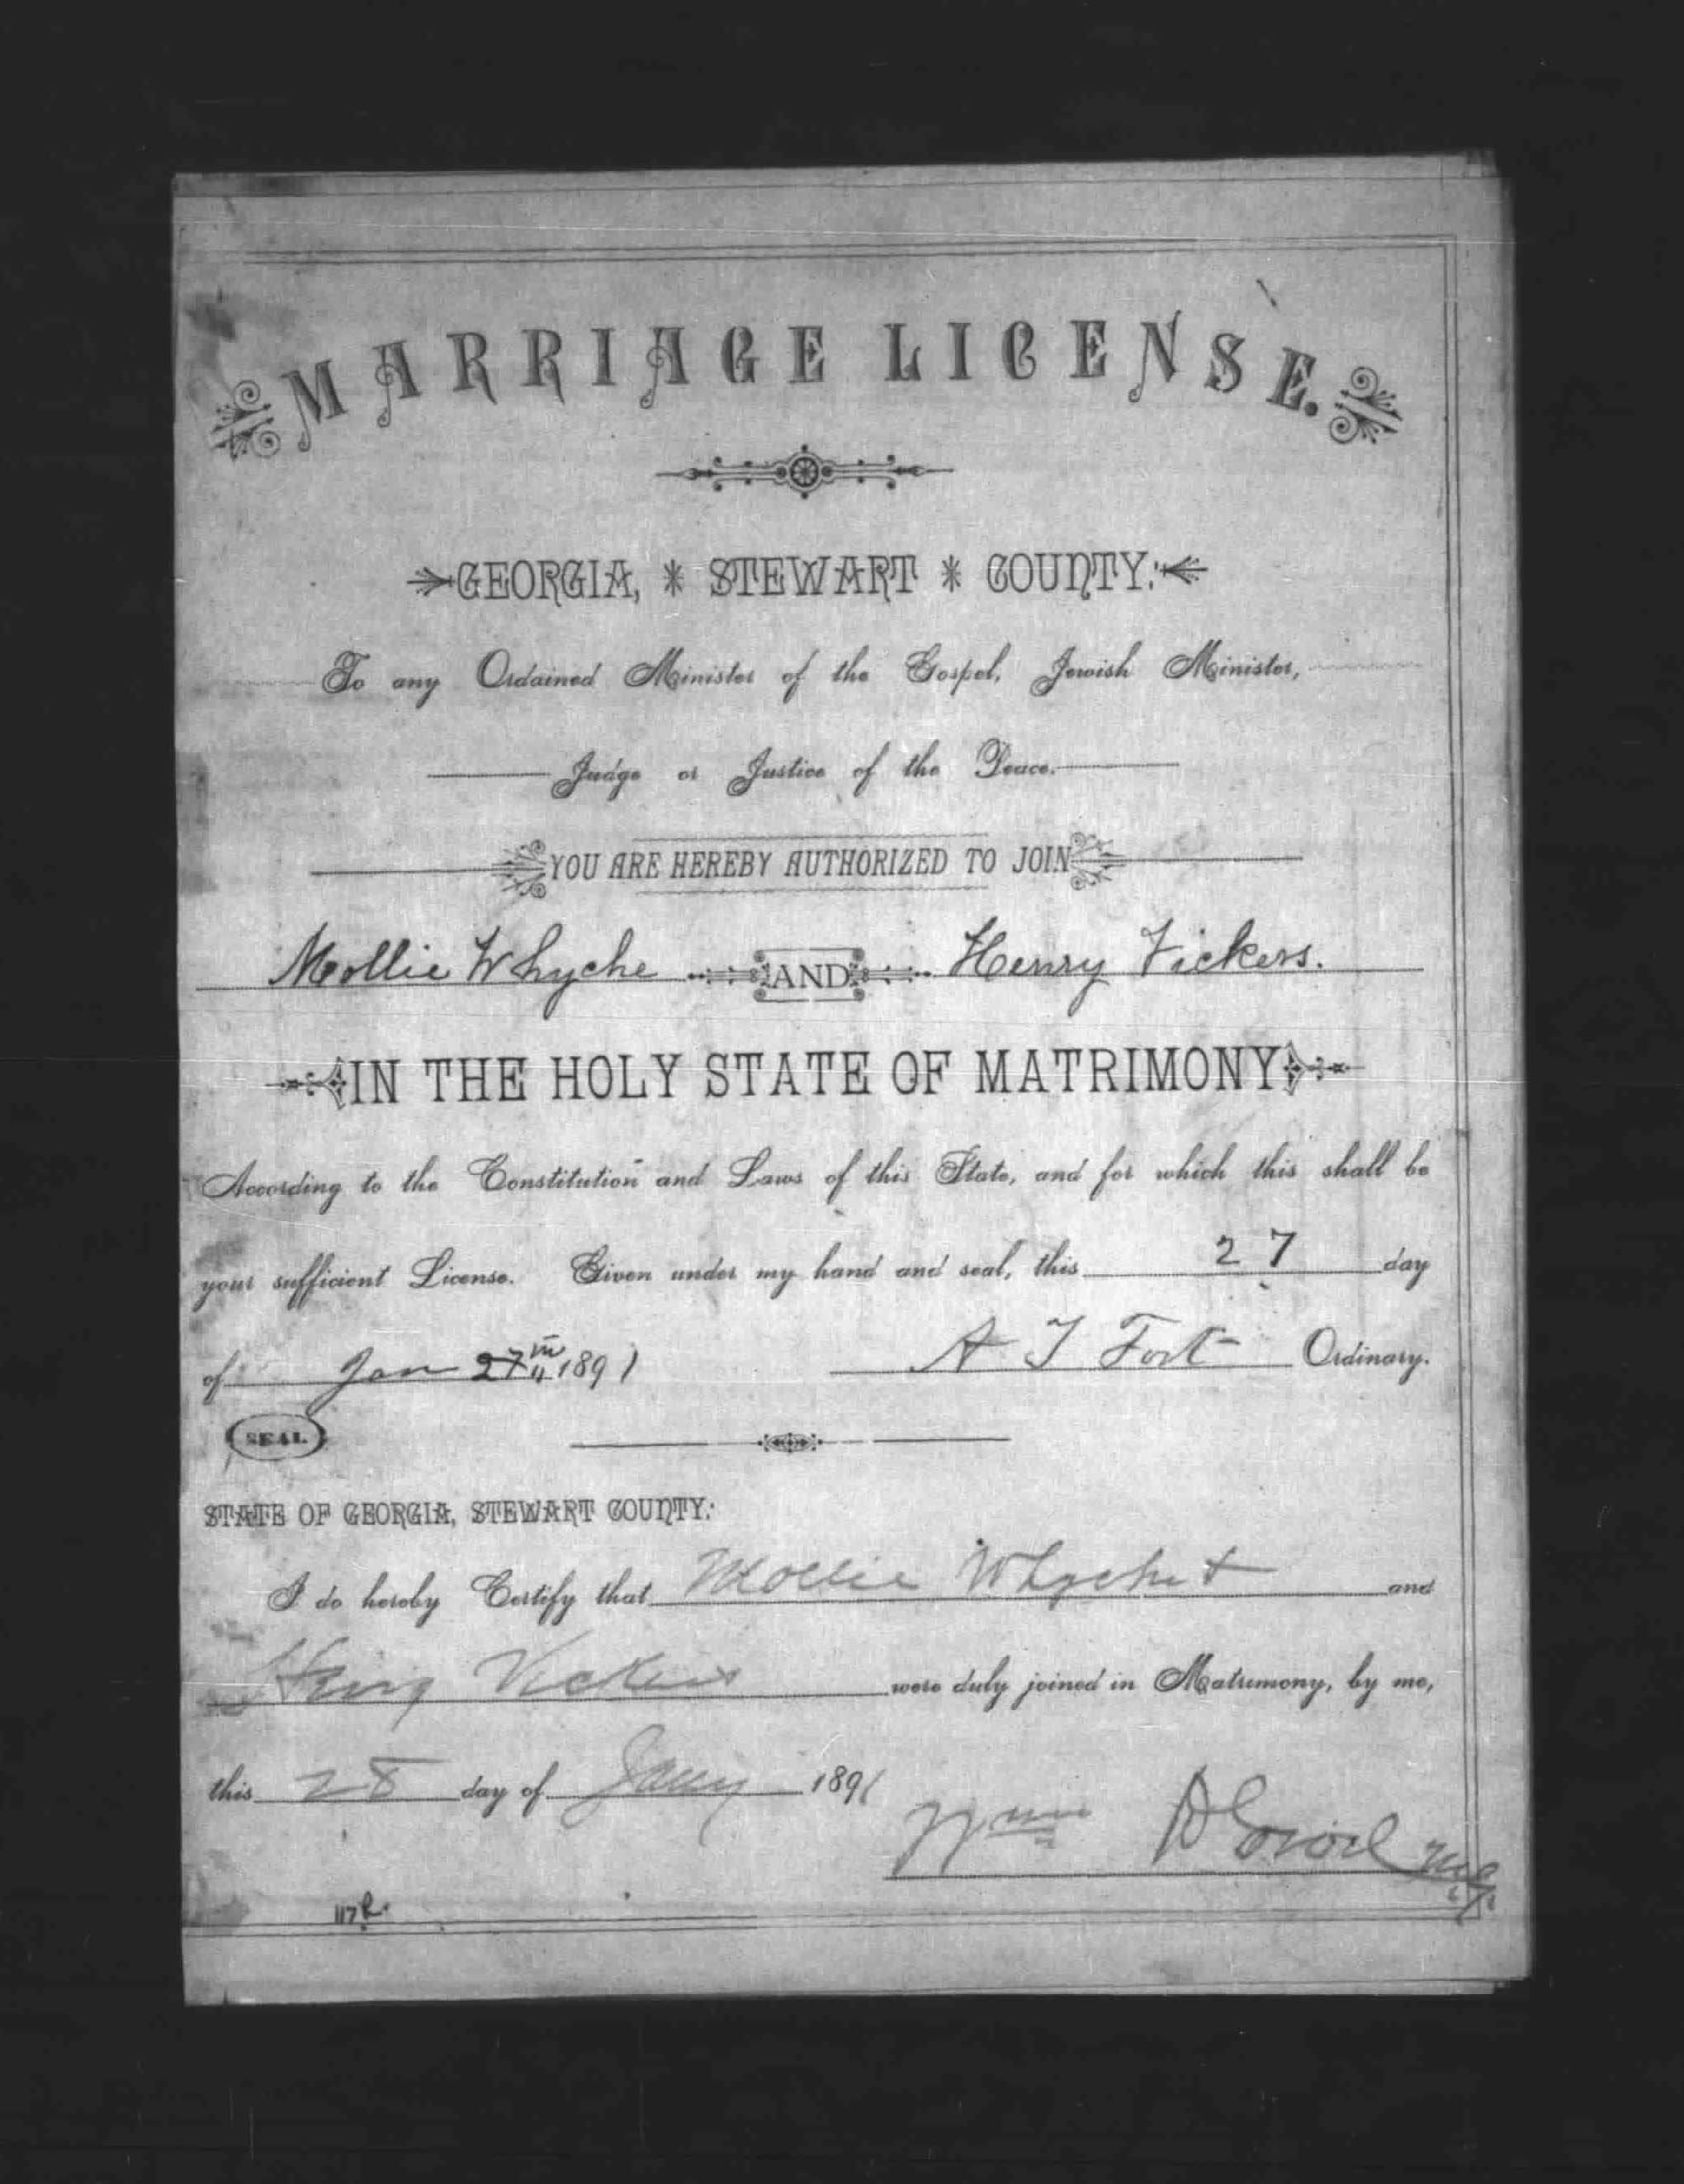 MARRIAGE LICENSE.
GEORGIA, * STEWART * COUNTY:
To any Ordained Minister of the Gospel, Jewish Minister,
Judge or Justice of the Peace.
YOU ARE HEREBY AUTHORIZED TO JOIN
Mollie Whyche AND Henry Vickers.
IN THE HOLY STATE OF MATRIMONY
According to the Constitution and Laws of this State, and for which this shall be
your sufficient License. Given under my hand and seal, this 27 day
of Jan 27th 1891 A T Fort Ordinary.
SEAL
STATE OF GEORGIA, STEWART COUNTY:
I do hereby Certify that Mollie and
Vickers were duly joined in Matrimony, by me,
this 28 day of Jany 1891
Wm
117